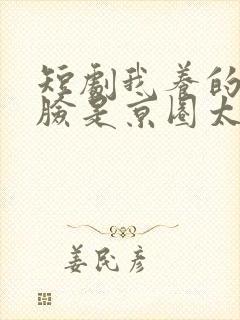 短剧我养的
脸是京圈太
姜民彦